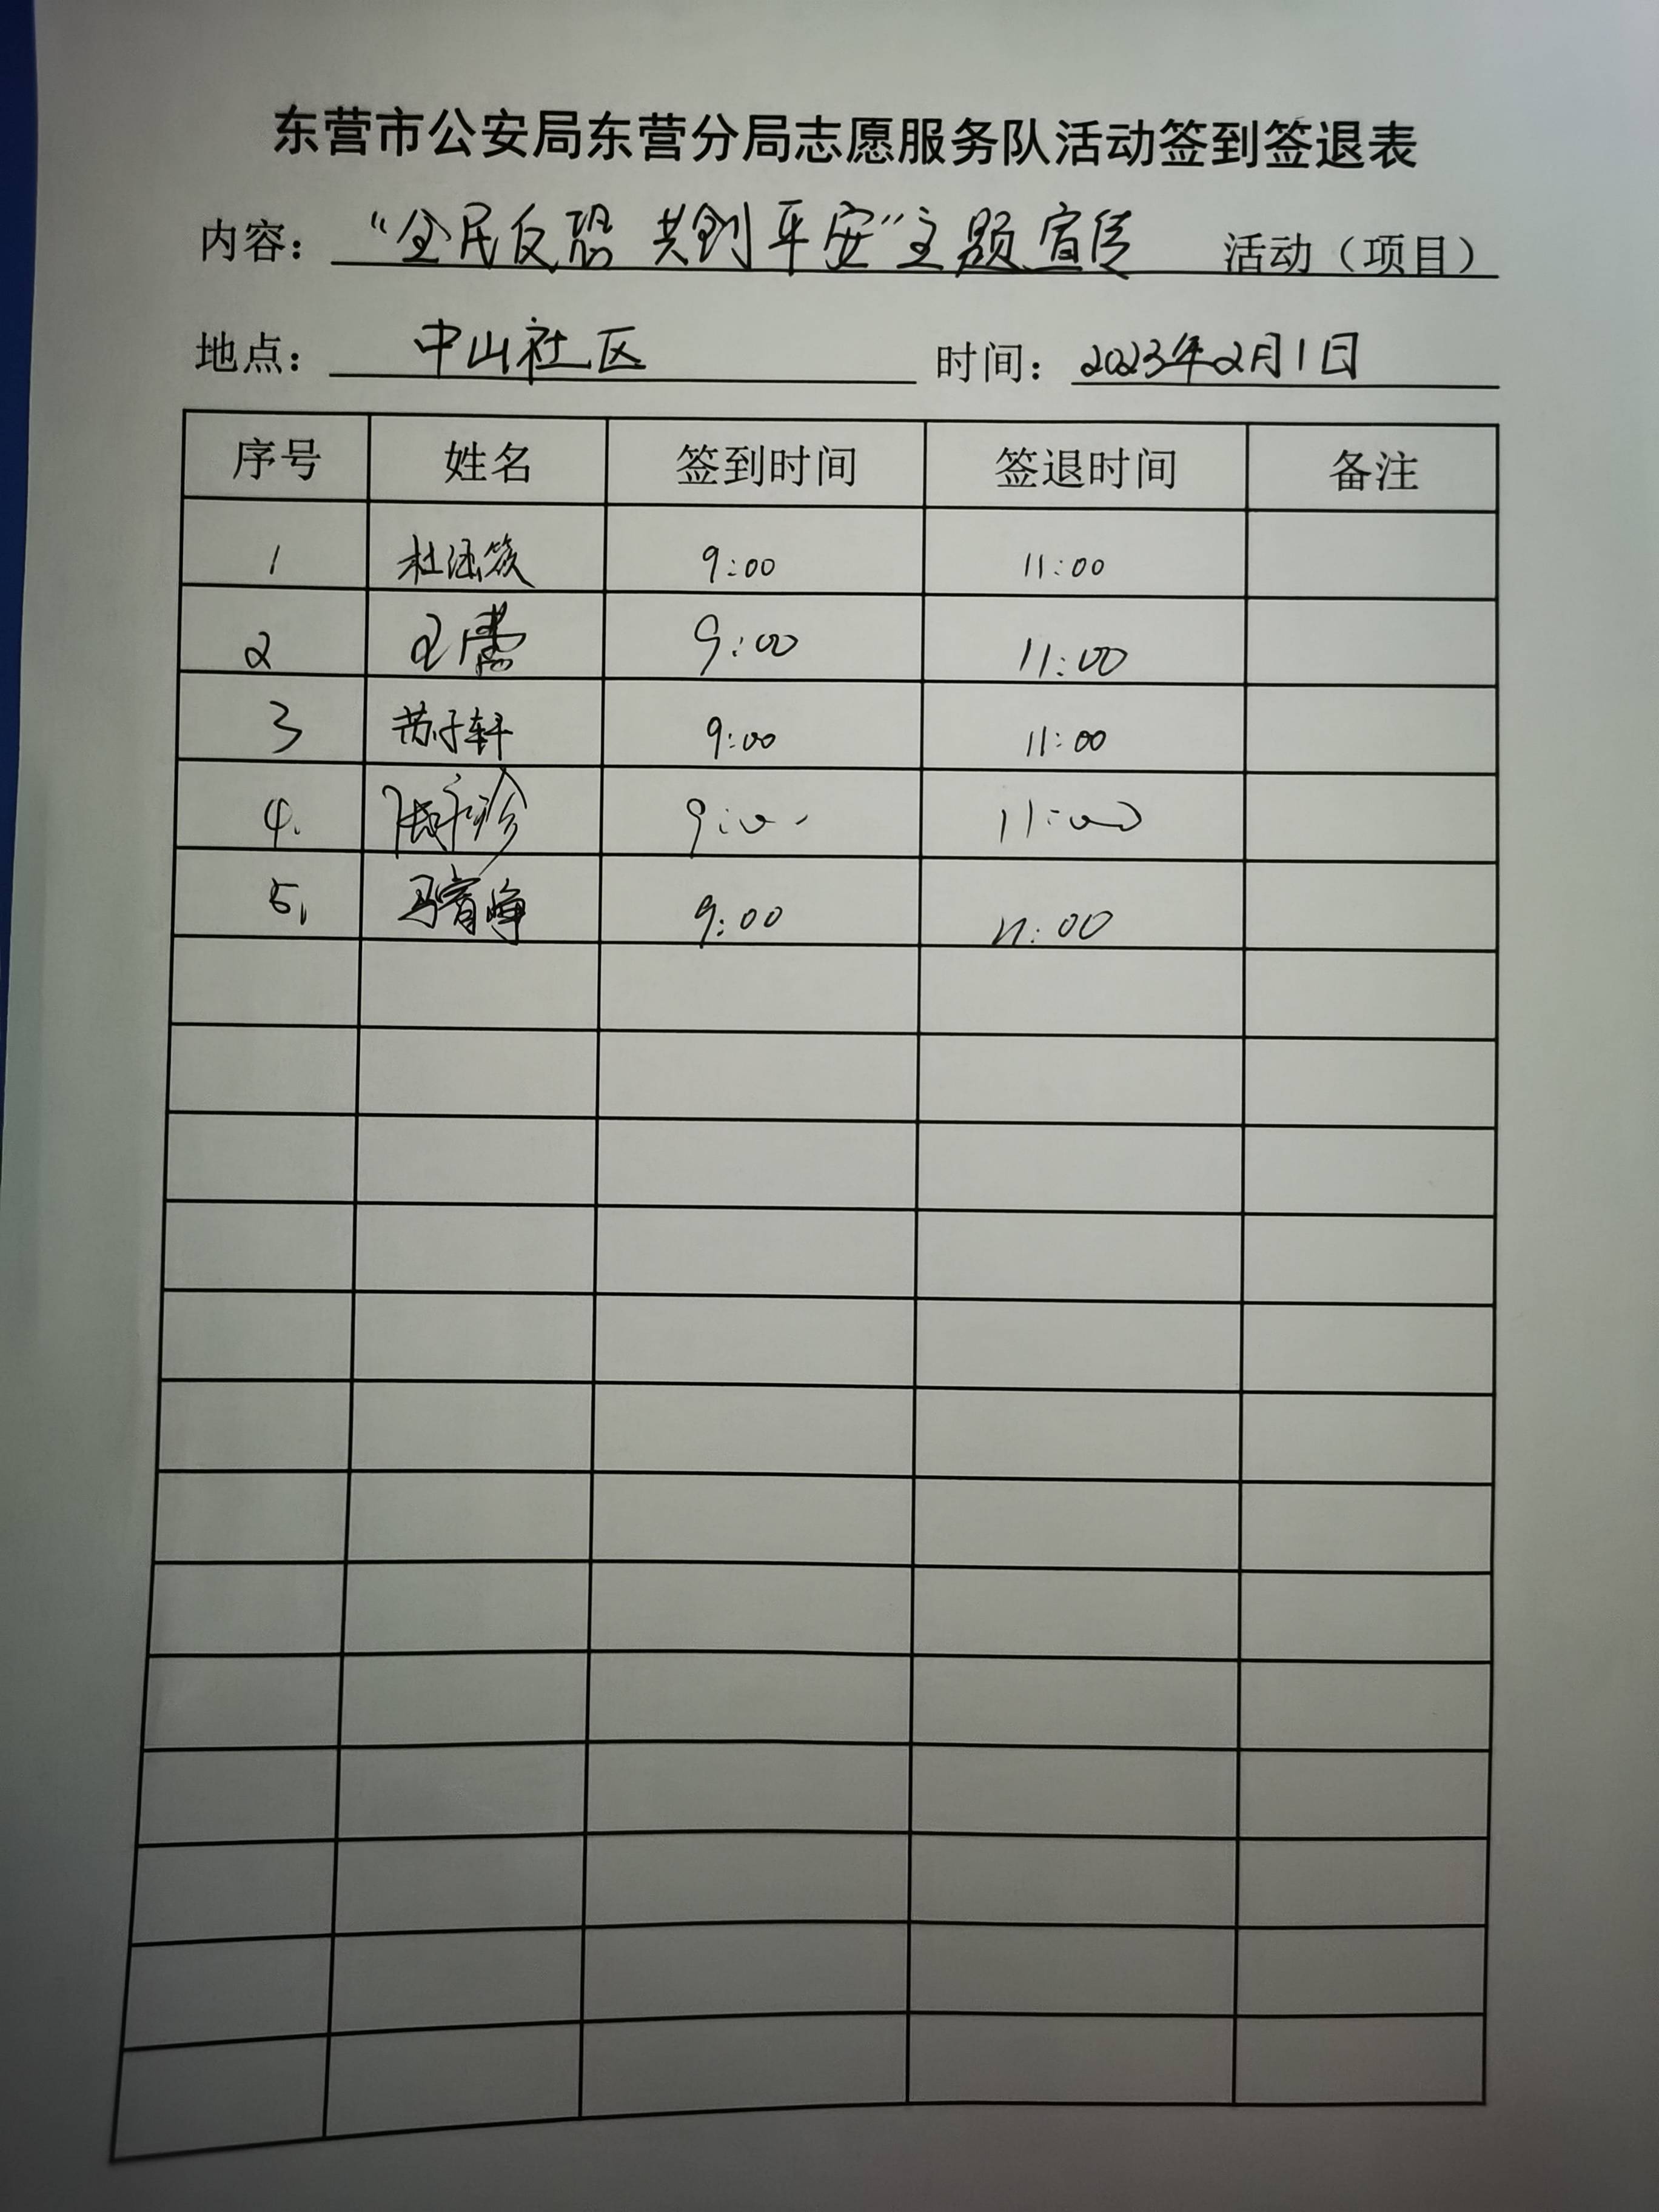 东营市公安局东营分局志愿服务队活动签到签退表
内容：“全民反恐 共创平安”主题宣传 活动（项目）
地点：中山社区 时间：2023年2月1日
序号 姓名 签到时间 签退时间 备注
1 9:00 11:00
2 9:00 11:00
3 苏子轩 9:00 11:00
4. 11:00
5. 9:00 11:00